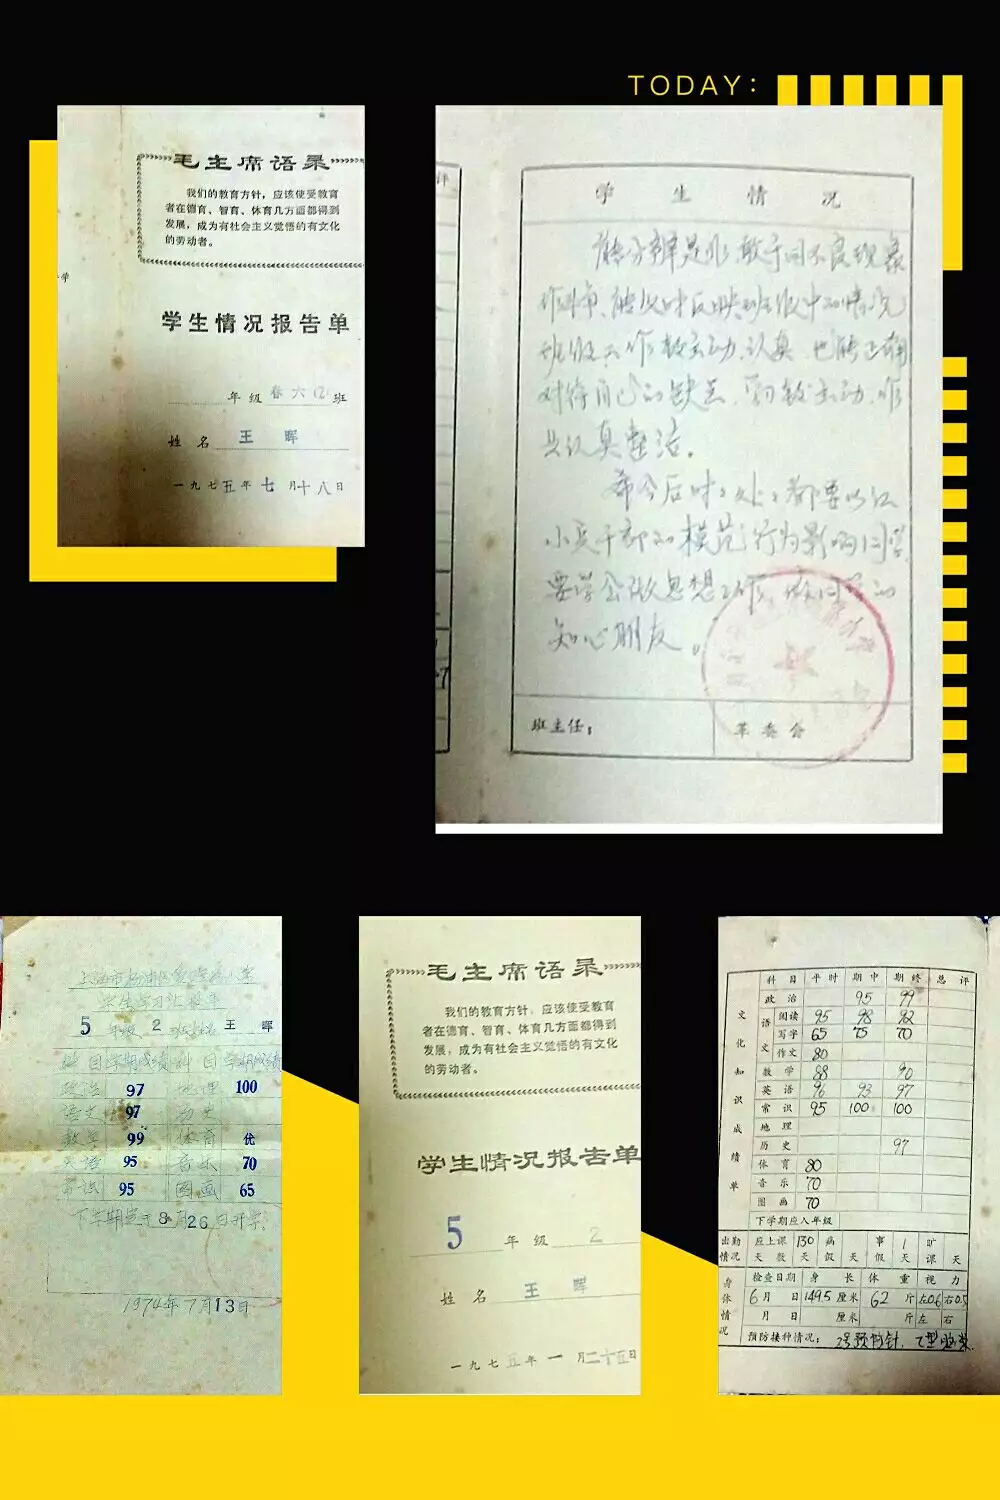 TODAY：
毛主席语录
我们的教育方针，应该使受教育
者在德育、智育、体育几方面都得到
发展，成为有社会主义觉悟的有文化
的劳动者。
学生情况报告单
年级 春六(2) 班
姓名 王晖
一九七五年七月十八日
评
学生情况
能分辨是非，敢于同不良现象
作斗争、能及时反映班级中的情况
班级工作较主动、认真，也能正确
对待自己的缺点，学习较主动，作
业认真整洁。
希今后时时处处都要以红
小兵干部的模范行为影响同学，
要学会做思想工作，做同学的
知心朋友。
班主任：
革委会
上海市杨浦区
5 年级 2 班 姓名 王晖
科目 学期成绩 科目 学期成绩
政治 97 地理 100
语文 97 历史
数学 99 体育 优
英语 95 音乐 70
常识 95 图画 65
下学期定于8月26日开学。
1974年7月13日
毛主席语录
我们的教育方针，应该使受教育
者在德育、智育、体育几方面都得到
发展，成为有社会主义觉悟的有文化
的劳动者。
学生情况报告单
5 年级 2
姓名 王晖
一九七五年一月二十五日
科目 平时 期中 期终 总评
文化知识成绩单
政治 95 99
语文 阅读 95 98 92
写字 65 75 70
作文 80
数学 88 90
英语 96 93 97
常识 95 100 100
地理
历史 97
体育 80
音乐 70
图画 70
下学期应入年级
出勤情况 应上课天数 130 病假 天 事假 1天 旷课 天
身体情况 检查日期 身长 体重 视力
6月 日 149.5厘米 62斤 左0.6 右0.5
月 日 厘米 斤 左 右
预防接种情况：2号预防针，乙型脑炎